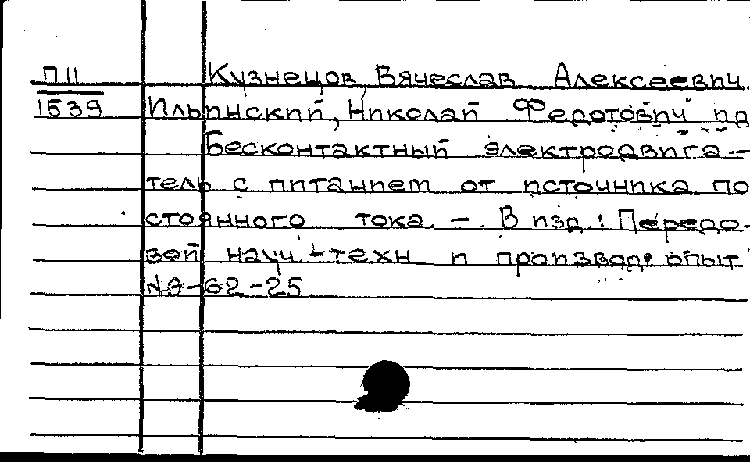 П11 Кузнецов, Вячеслав Алексеевич.
1539 Ильинский, Николай Федотович и др
Бесконтактный электродвига-
тель с питанием от источника по
стоянного тока. – В изд.: Передо-
вой науч.-техн и производ. опыт
№9-62-25